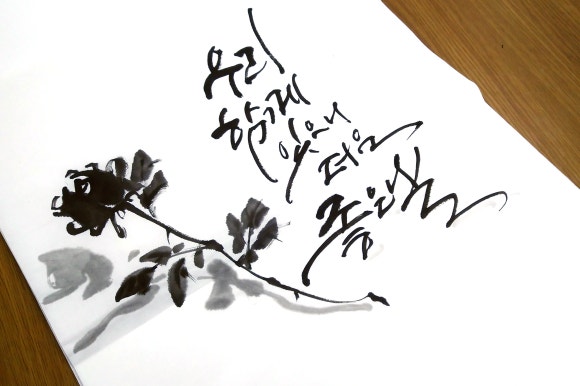 우리
함께
있으니
더욱
좋은날